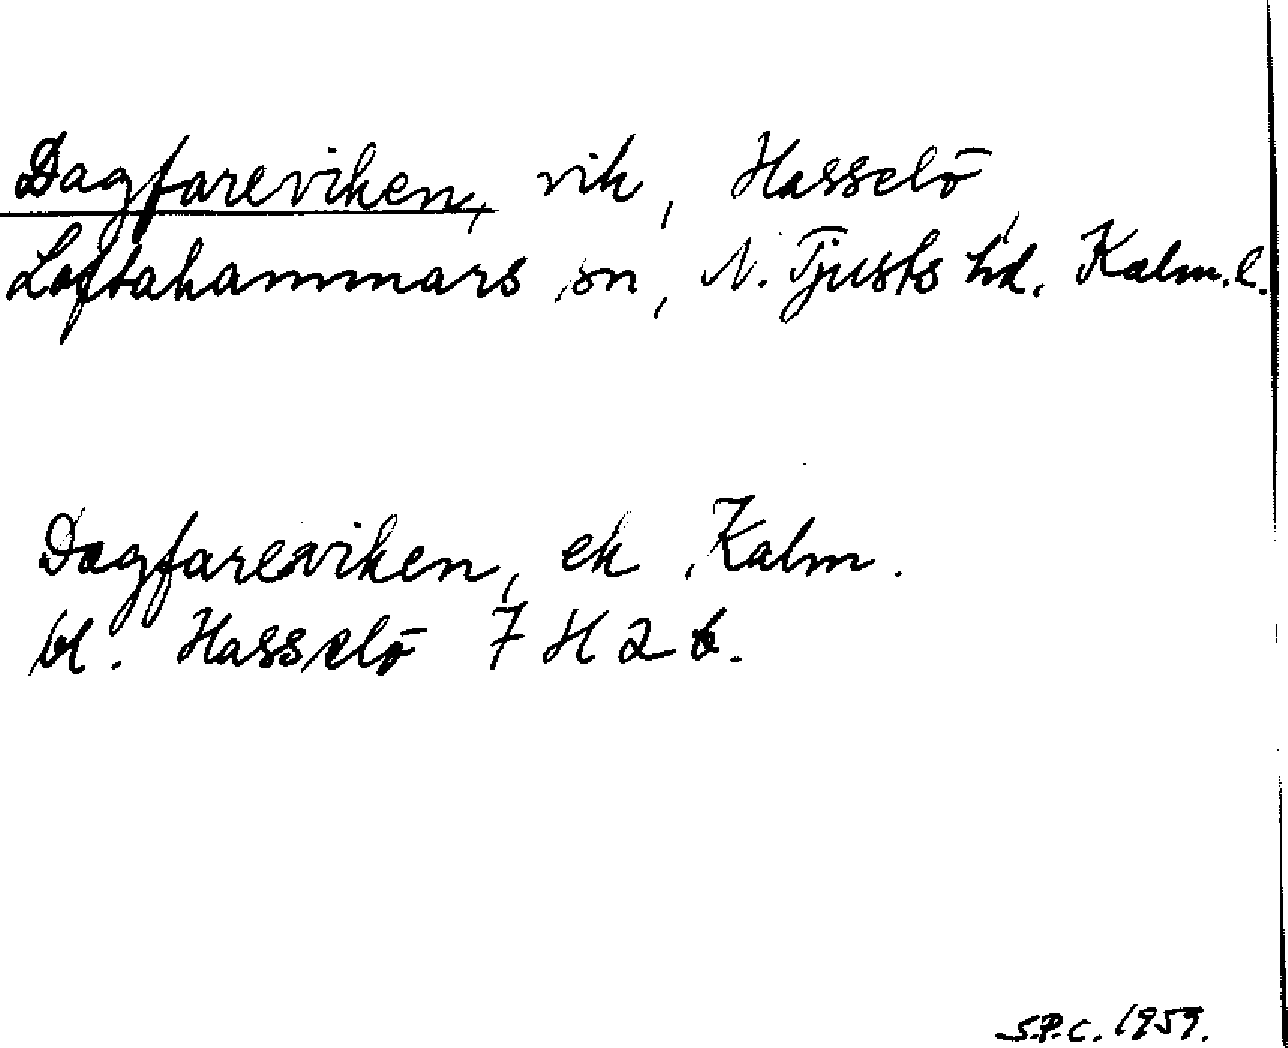 Dagfareviken, vik, Hasselö
Loftahammars sn, N. Tjusts hd, Kalm. l.
Dagfareviken, ek, Kalm.
bl. Hasselö 7 H 2 b.
S.P.C. 1959.